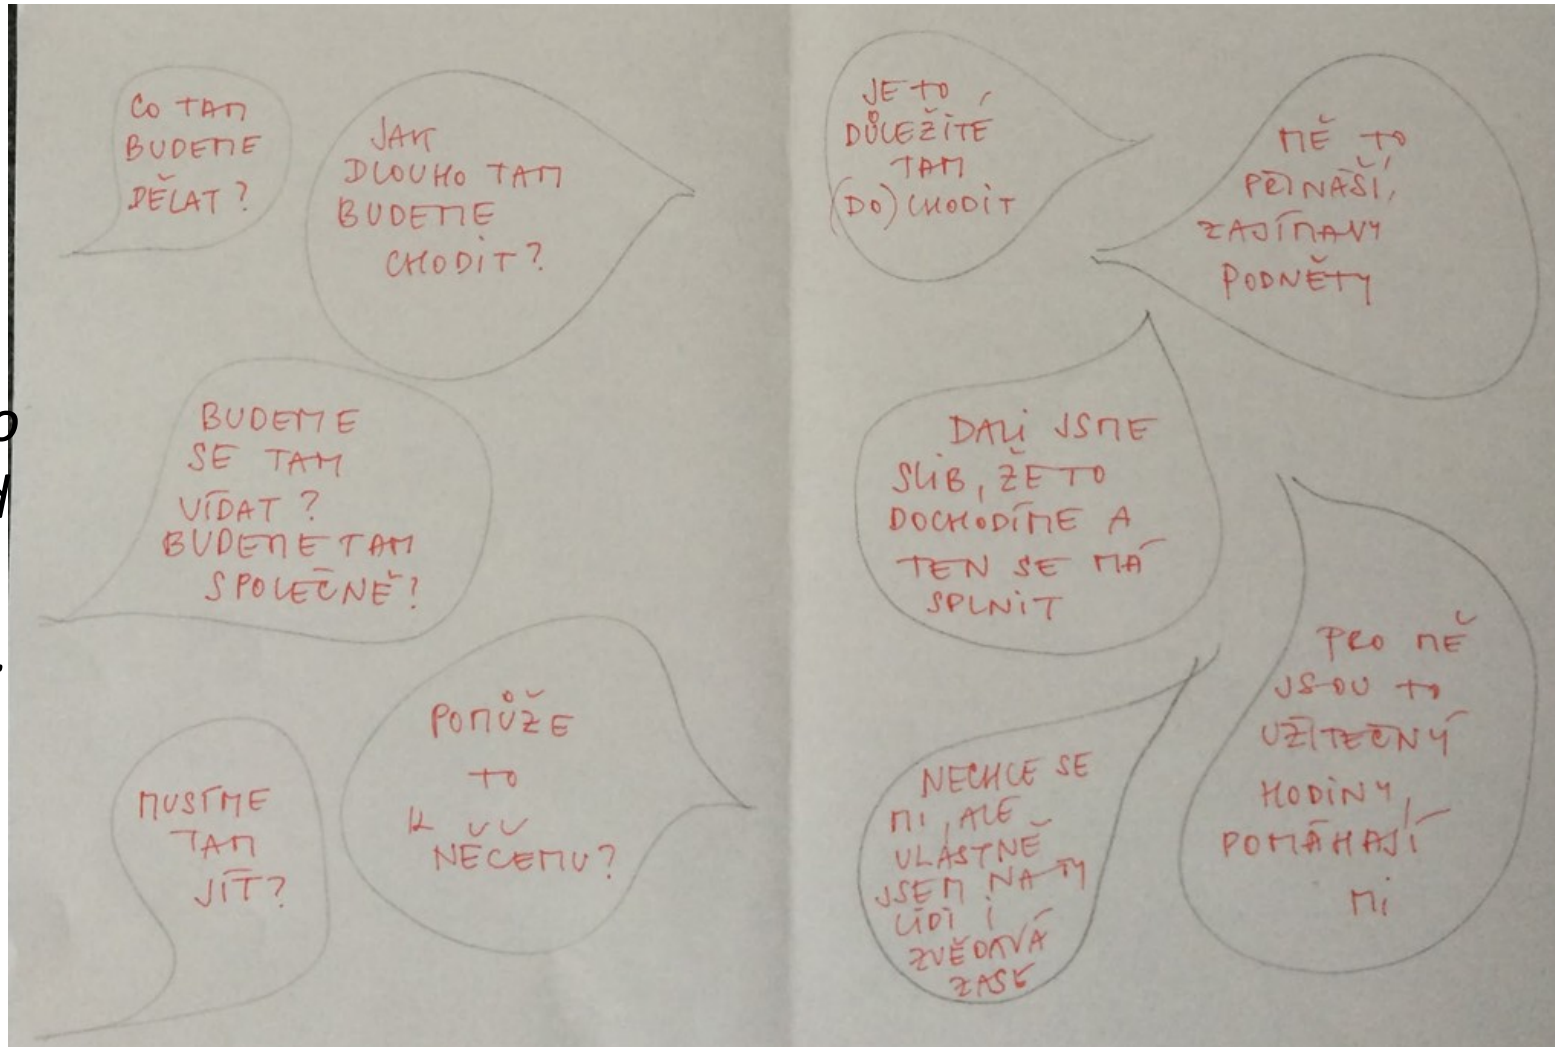 CO TAM
BUDEME
DĚLAT?
JAK
DLOUHO TAM
BUDEME
CHODIT?
BUDEME
SE TAM
VÍDAT?
BUDEME TAM
SPOLEČNĚ?
MUSÍME
TAM
JÍT?
POMŮŽE
TO
K
NĚČEMU?
JE TO
DŮLEŽITÉ
TAM
(DO)CHODIT
MĚ TO
PŘINÁŠÍ,
ZAJÍMAVY
PODNĚTY
DALI JSME
SLIB, ŽE TO
DOCHODÍME A
TEN SE MÁ
SPLNIT
NECHCE SE
MI, ALE
VLASTNĚ
JSEM NA TY
LIDI I
ZVĚDAVÁ
ZASE
PRO MĚ
JSOU TO
UŽITEČNÝ
HODINY,
POMÁHAJÍ
MI